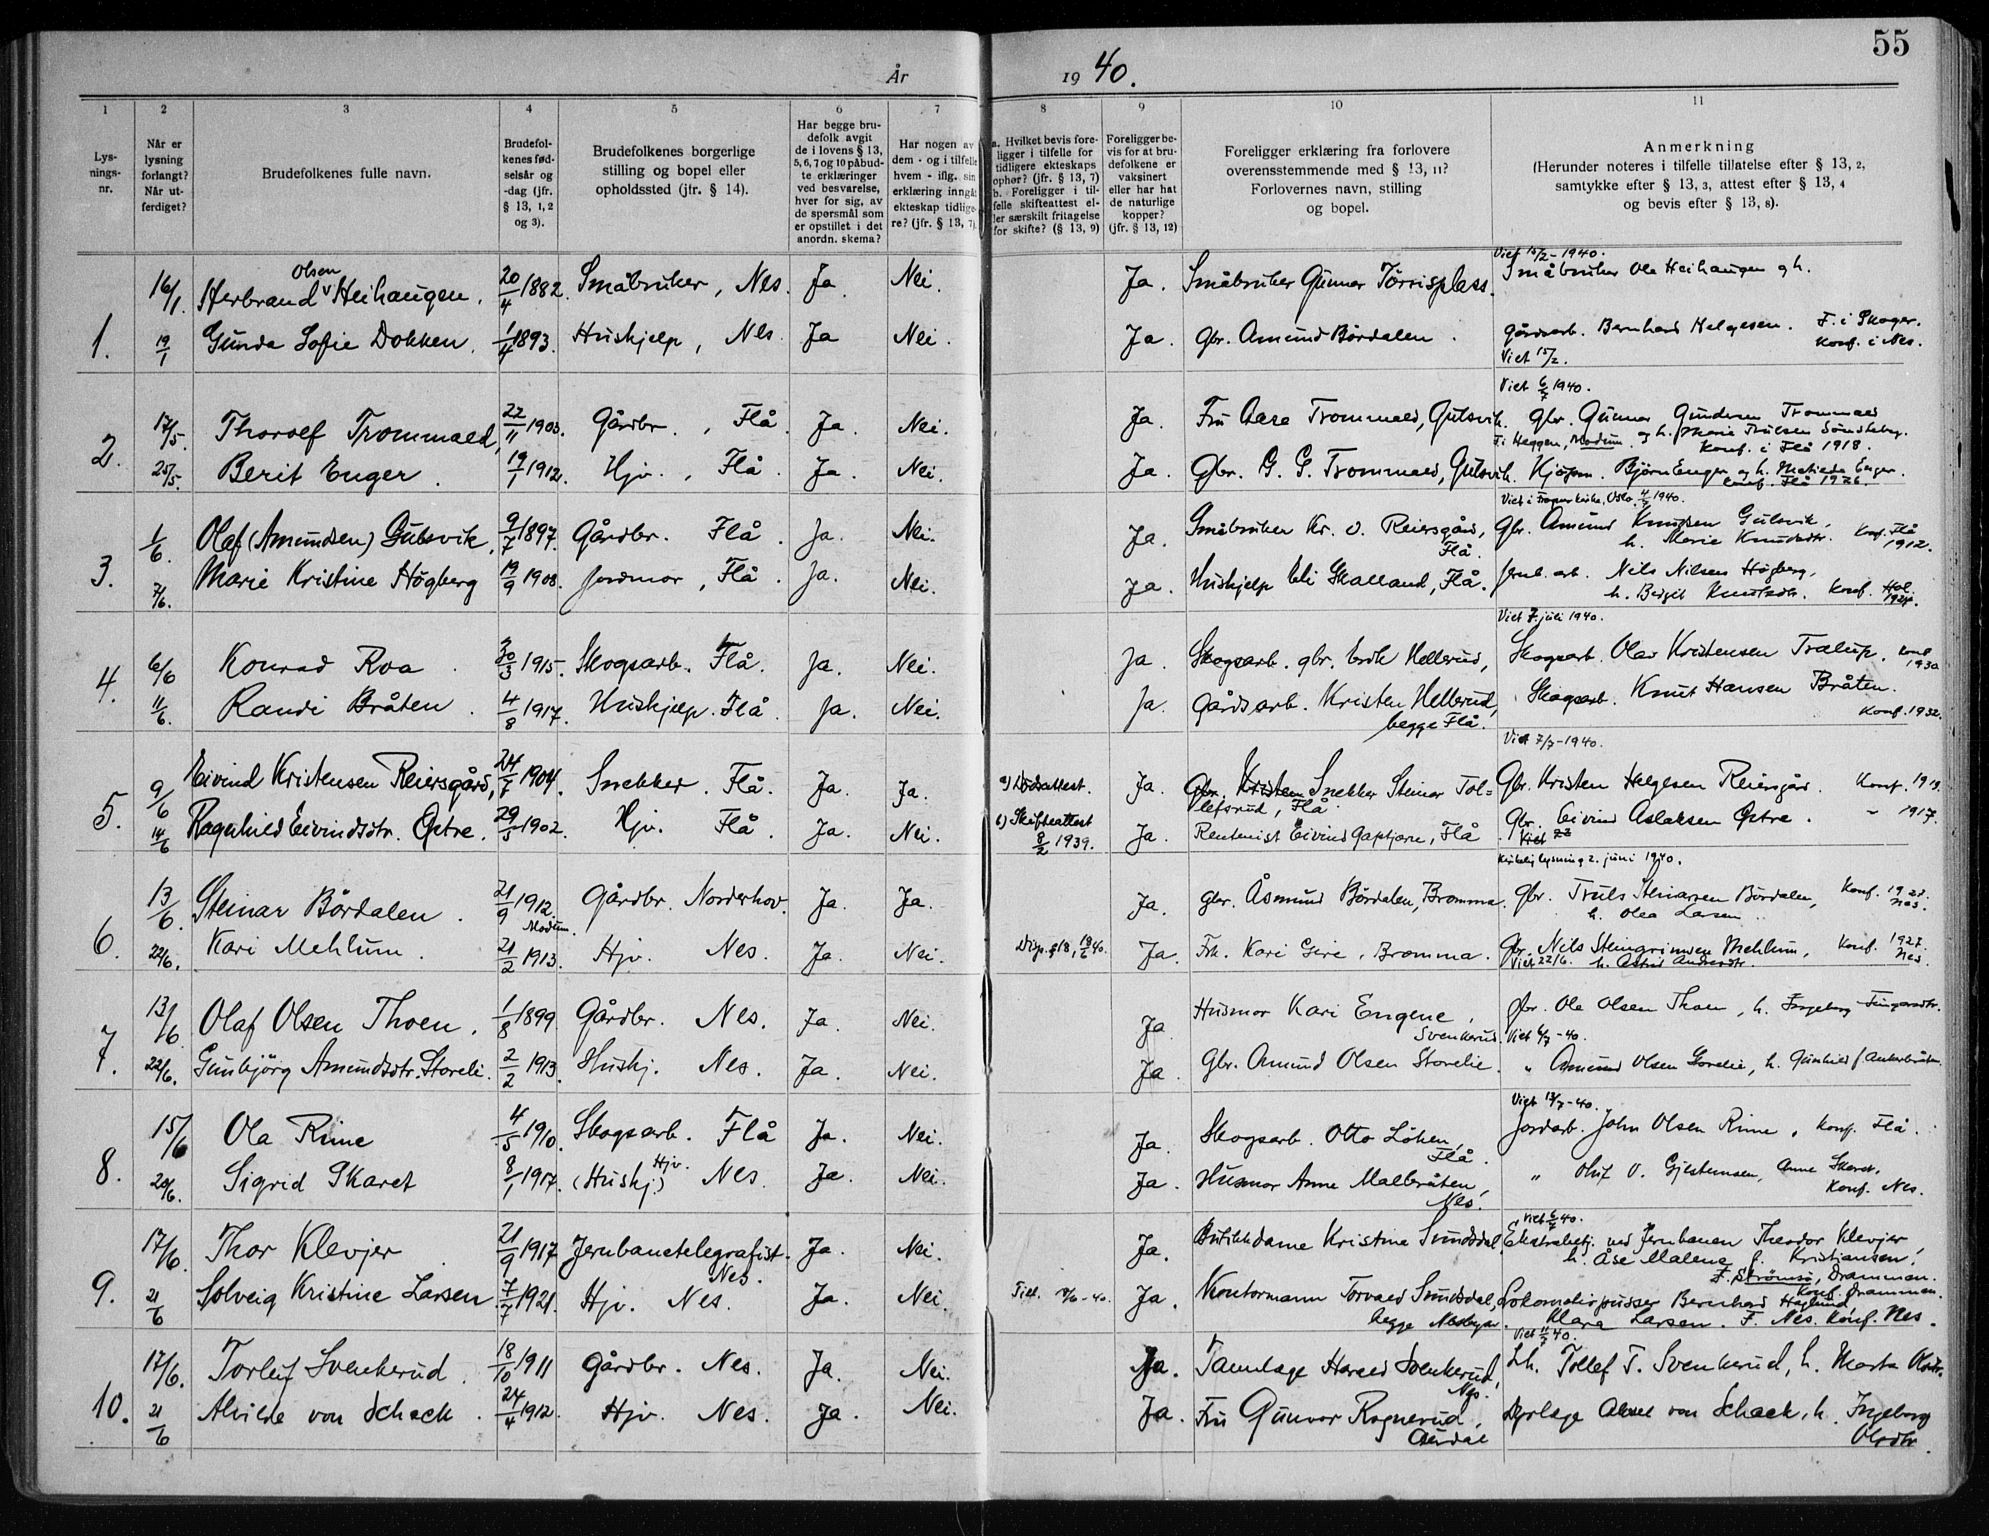 55
År 1940.
1 2 3 4 5 6 7 8 9 10 11
Lysnings-nr.
Når er lysning forlangt? Når utferdiget?
Brudefolkenes fulle navn.
Brudefolkenes fødselsår og -dag (jfr. § 13, 1, 2 og 3).
Brudefolkenes borgerlige stilling og bopel eller opholdssted (jfr. § 14).
Har begge brudefolk avgitt de i lovens § 13, 5, 6, 7 og 10 påbudte erklæringer ved besvarelse, hver for sig, av de spørsmål som er opstillet i det anordn. skema?
Har nogen av dem - og i tilfelle hvem - iflg. sin erklæring inngått ekteskap tidligere? (jfr. § 13, 7).
a. Hvilket bevis foreligger i tilfelle for tidligere ekteskaps ophør? (jfr. § 13, 7) b. Foreligger i tilfelle skifteattest eller særskilt fritagelse for skifte? (§ 13, 9)
Foreligger bevis for at brudefolkene er vaksinert eller har hatt de naturlige kopper? (jfr. § 13, 12)
Foreligger erklæring fra forlovere overensstemmende med § 13, 11? Forlovernes navn, stilling og bopel.
Anmerkning (Herunder noteres i tilfelle tillatelse efter § 13, 2, samtykke efter § 13, 3, attest efter § 13, 4 og bevis efter § 13, 8).
Viet 15/2-1940.
1. 16/1 Herbrand Olsen Heihaugen. 20/4 1882. Småbruker, Nes. Ja. Nei. Ja. Småbruker Gunnar Törrisplass. Småbruker Ole Heihaugen gh.
19/1 Gunda Sofie Dokken. 1/4 1893. Hushjelp, Nes. Ja Nei. Ja. Gbr. Amund Bördalen. Gårdsarb. Bernhard Helgesen. F. i Skoger. Konf. i Nes.
Viet 15/2.
Viet 6/7 1940.
2. 17/5 Thorolf Trommald, 22/11 1903. Gårdbr., Flå. Ja. Nei. Ja. Fru Aase Trommald, Gulsvik. Gbr. Gunnar Gundersen Trommald
F. i Heggen, Modum og h. Marie Trulsen
Konf. i Flå 1918.
25/5. Berit Enger. 19/1 1912. Hjv., Flå. Ja. Nei. Ja. Gbr. G. G. Trommald, Gulsvik. Björn Enger og h. Enger.
Konf. Flå 1926.
Viet i Frogner kirke, Oslo, 1940.
3. 1/6 Olaf (Amundsen) Gulsvik, 9/7 1897. Gårdbr. Flå. Ja. Nei. Ja. Småbruker Kr. O. Reiersgård, Flå. Gbr. Amund Knudsen Gulsvik, h. Marie Knudsdtr. Konf. Flå 1912.
7/6. Marie Kristine Högberg 19/9 1908. Jordmor, Flå. Ja. Nei. Ja. Hushjelp Eli Skalland, Flå. Jernb.arb. Nils Nilsen Högberg, h. Birgit Knutsdtr. Konf. Hol 1924.
Viet 7. juli 1940.
4. 6/6 Konrad Roa. 30/3 1915. Skogsarb. Flå. Ja. Nei. Ja. Skogsarb. gbr. Erik Hellerud, Skogsarb. Olav Kristensen Konf 1930
11/6. Randi Bråten. 4/8 1917. Hushjelp. Flå. Ja. Nei. Ja. Gårdsarb. Kristen Hellerud, begge Flå. Skogsarb. Knut Hansen Bråten. Konf. 1932.
Viet 7/7-1940.
5. 9/6 Eivind Kristensen Reiersgård, 24/7 1904. Snekker. Flå. Ja. Ja. a) Dödsattest. Ja. Gbr. Kristen Snekker Steinar Tollefsrud, Flå. Gbr. Kristen Helgesen Reiersgård. Konf. 1919.
14/6 Ragnhild Eivindsdtr. Östre. 29/5 1902. Hjv. Flå. Ja. Nei. b) Skifteattest 8/2 1939. Ja. Rentenist Eivind Gaptjern, Flå Gbr. Eivind Aslaksen Östre. " 1917.
Viet
Kirkelig lysning 2. juni 1940.
6. 13/6 Steinar Bördalen. 21/9 1912. Modum. Gårdbr. Norderhov. Ja. Ja. Ja. Gbr. Åsmund Bördalen, Bromma. Gbr. Truls Steinarsen Bördalen, h. Olea Larsen Konf. Nes.
22/6. Kari Mehlum. 21/2 1913. Hjv. Nes. Ja. Nei. Disp. § 18, 18/6 40. Ja. Frk. Kari Geire, Bromma. Gbr. Nils Steingrimsen Mehlum, Konf. 1927. Nes
Viet 22/6. h. Astrid Andersdtr.
7. 13/6 Olaf Olsen Thoen. 1/8 1899 Gårdbr. Nes. Ja. Nei. Ja Husmor Kari Engene, Svenkerud. Gbr. Ole Olsen Thoen, h. Ingeborg
Viet 6/7-40.
22/6. Gunbjörg Amundsdtr. Storeli. 2/2 1913. Hushj. Nes. Ja. Nei. Ja. Gbr. Amund Olsen Storelie. " Amund Olsen Storelie, h. Gunhild
Viet 13/7-40.
8. 15/6 Ola Rime 4/5 1910. Skogsarb. Flå Ja. Nei. Ja. Skogsarb. Otto Löken, Flå. Jordarb. John Olsen Rime, Konf. Flå.
20/6. Sigrid Skaret 8/1 1917. (Hushj.) Hjv. Nes. Ja. Nei. Ja. Husmor Anne Malbråten, Nes. " Oluf O. Gjestemsen, Anne Skaret. Konf. Nes.
Viet 6/7 40.
9. 17/6. Thor Klevjer 21/9 1917 Jernbanetelegrafist. Nes. Ja. Nei. Ja. Butikkdame Kristine Sundsdal, Ekstrabetj. ved Jernbanen Theodor Klevjer, h. Åse Malena f. Kristiansen.
F. Strömsö, Drammen. Konf. Drammen.
21/6 Solveig Kristine Larsen 7/7 1921. Hjv. Nes. Ja. Nei. Till. 40. Ja. Kontormann Torvald Sundsdal, begge Nesbyen. Lokomotivpusser Bernhard Haglund, Klara Larsen. F. Nes. Konf. Nes.
Viet 40.
10. 17/6. Torleif Svenkerud. 18/10 1911 Gårdbr. Nes. Ja. Nei. Ja. Tannlæge Harald Svenkerud, Nes. Lh. Tollef T. Svenkerud, h. Marta Olsdtr.
21/6 Alvilde von Schack. 24/4 1912. Hjv. Nes. Ja. Nei. Ja. Fru Gunvor Rognerud, Dyrlæge Aksel von Schack, h. Ingeborg Olsdtr.